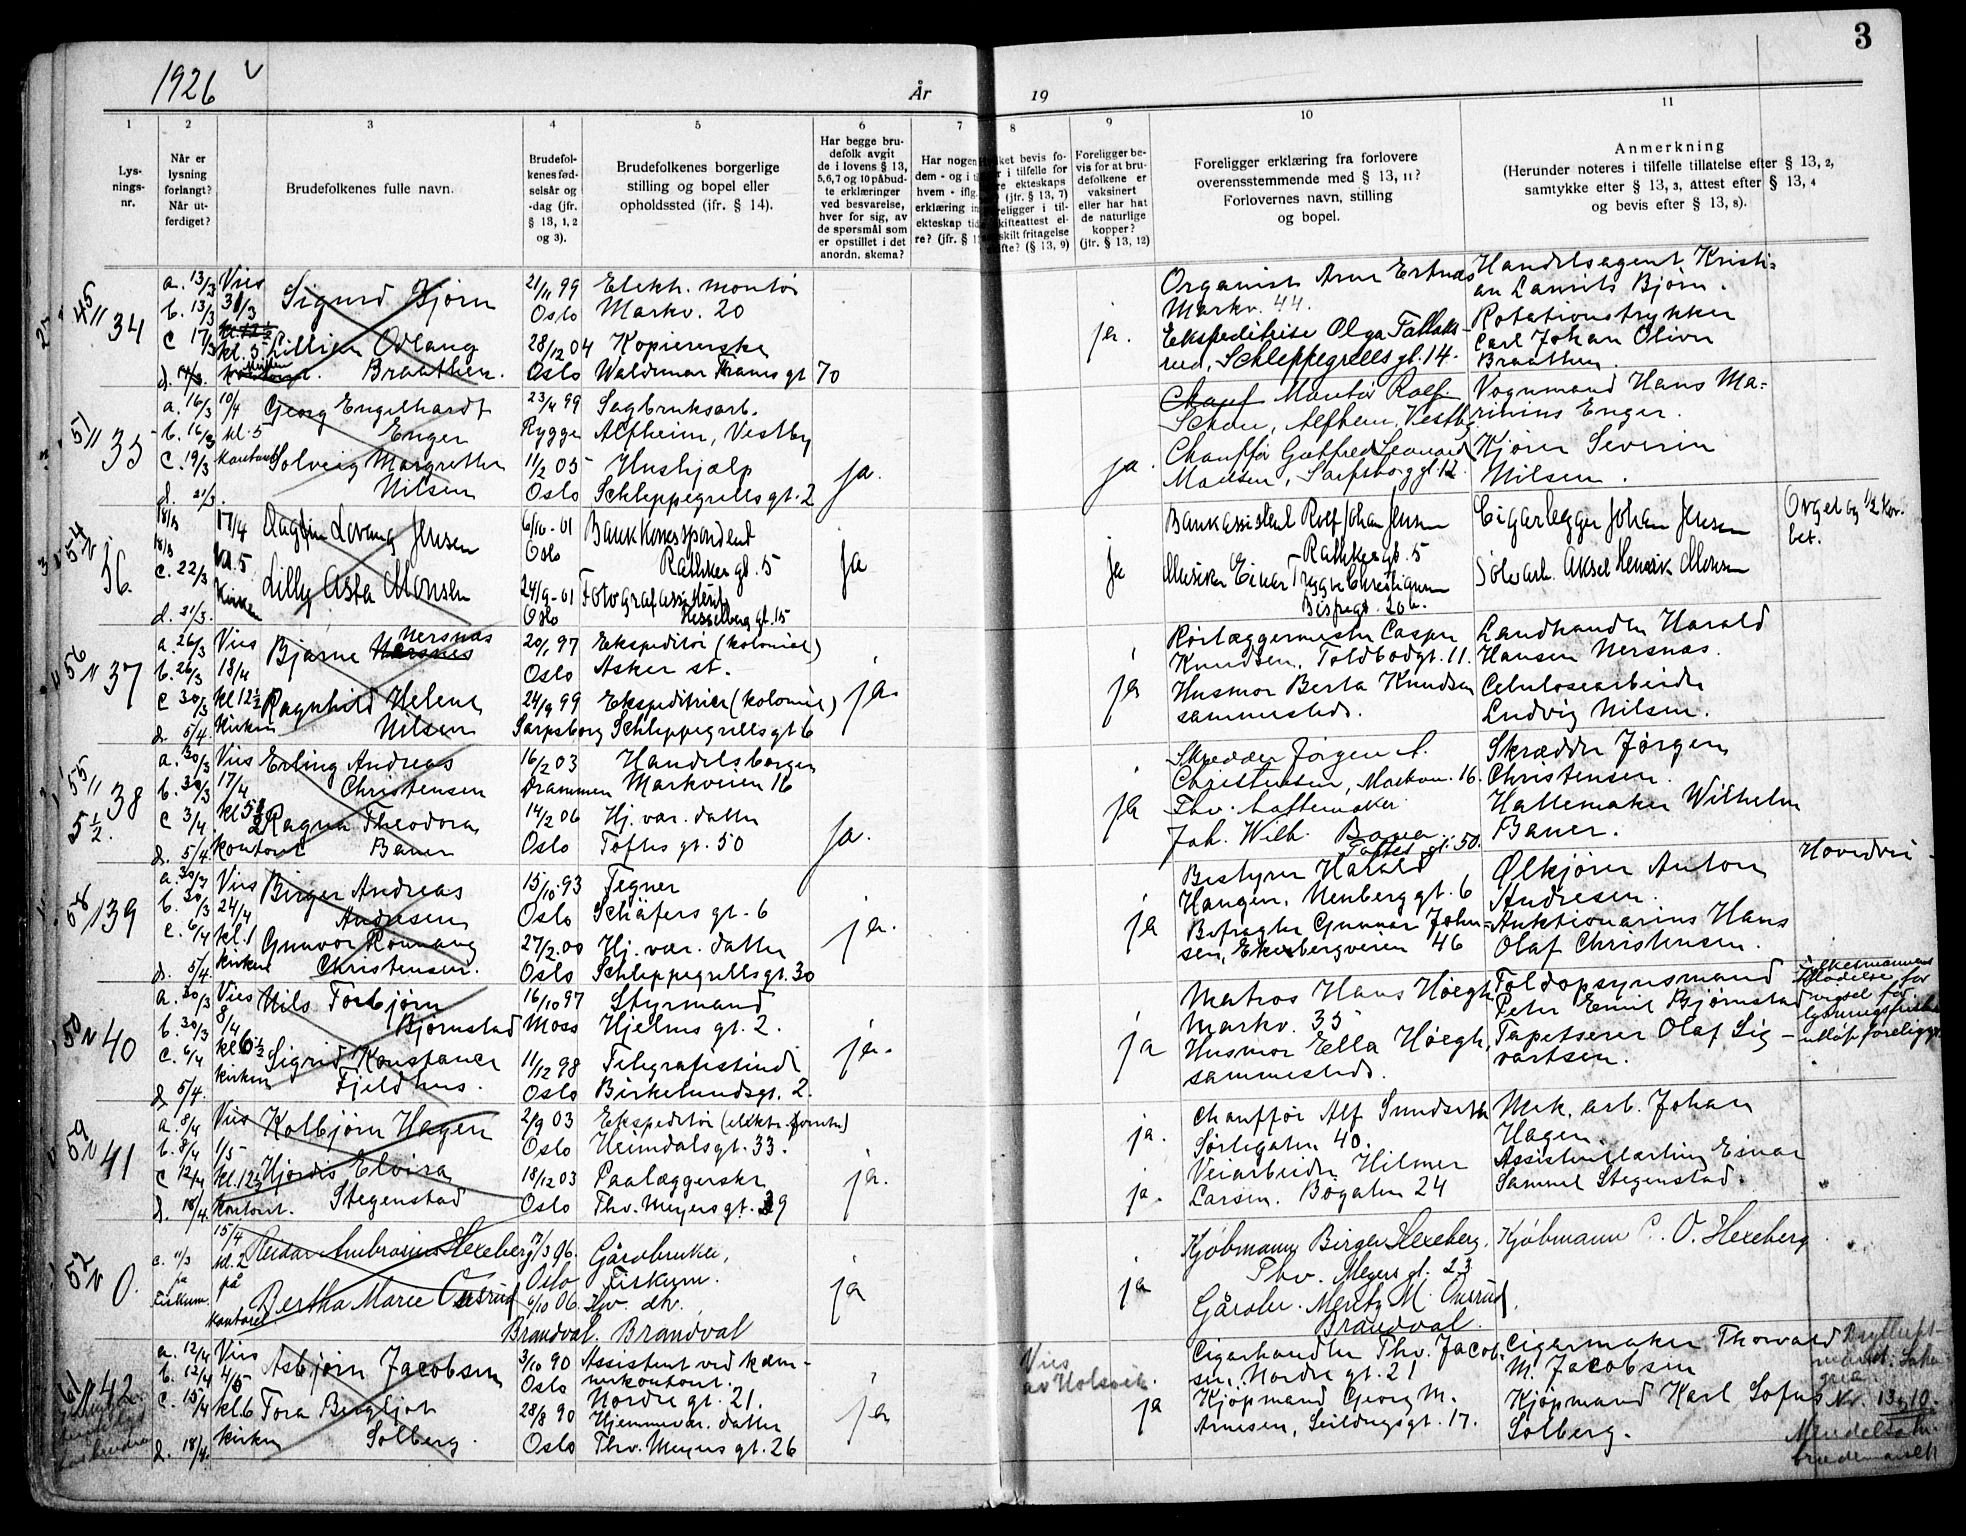 3
1926
År
19
1
2
3
4
5
6
7
8
9
10
11
Lys-
nings-
nr.
Når er
lysning
forlangt?
Når ut-
ferdiget?
Brudefolkenes fulle navn.
Brudefol-
kenes fød-
selsår og
-dag (jfr.
§ 13, 1, 2
og 3).
Brudefolkenes borgerlige
stilling og bopel eller
opholdssted (jfr. § 14).
Har begge bru-
defolk avgit
de i lovens § 13,
5,6,7 og 10 påbud-
te erklæringer
ved besvarelse,
hver for sig, av
de spørsmål som
er opstillet i det
anordn. skema?
Har nogen
dem - og i
hvem - iflg.
erklæring
ekteskap
re? (jfr. §
bevis fo-
i tilfelle for
ekteskaps
(jfr. § 13, 7)
skifteattest el-
fritagelse
(§ 13, 9)
Foreligger be-
vis for at bru-
defolkene er
vaksinert
eller har hat
de naturlige
kopper?
(jfr. § 13, 12)
Foreligger erklæring fra forlovere
overensstemmende med § 13, 11?
Forlovernes navn, stilling
og bopel.
Anmerkning
(Herunder noteres i tilfelle tillatelse efter § 13, 2,
samtykke efter § 13, 3, attest efter § 13, 4
og bevis efter § 13, 8).
34
a. 13/3 Vies
b. 13/3 31/3
c 17/3 kl. 5
Sigurd Bjørn
Lillian Odlaug
Braathen.
21/11 99
Oslo
28/12 04
Oslo
Elektr. montør
Markv. 20
Kopiererske
Waldemar Thranes gt 70
ja.
Organist Arne Ertnæs
Markv. 44.
Schleppegrells gt. 14.
Handelsagent Kristi-
an Laurits Bjørn.
Rotationstrykker
Carl Johan Oliver
Braathen.
35
a. 16/3 10/4
b. 16/3 kl. 5
c. 19/3 kontoret
d. 21/3.
Georg Engelhardt
Enger
Solveig Margrethe
Nilsen
23/4 99
Rygge
11/2 05
Oslo
Sagbruksarb.
Alfheim, Vestby
Hushjælp
Schleppegrells gt. 2
ja.
ja.
Montør Rolf
Alfheim, Vestby
Chauffør Gottfred Leonard
Madsen, Sarpsborggt. 12.
Vognmand Hans Ma-
rinius Enger.
Kjører Severin
Nilsen.
36.
18/3 17/4
18/3 kl. 5
c. 22/3 Kirken
d. 31/3.
Dagfin Lovang Jensen
Lilly Asta Monsen
6/10-01
Oslo
24/9-01
Oslo
Bankkorrespondent
Rathkes gt. 5
Fotografassistent
Hesselberg gt. 15
ja
ja
Bankassistent Rolf Johan Jensen
Rathkes gt. 5
Musiker Einar Trygve Christiansen
Bispegt. 20b.
Cigarlegger Johan Jensen
Sølvarb. Aksel Henrik Monsen
Orgel og 1/2 kor.
bet.
37
a 26/3 Vies
b. 26/3 18/4
c 30/3 kl 12 1/2
d. 5/4. Kirken
Nersnæs
Bjarne
Ragnhild Helene
Nilsen
20/1 97
Oslo
24/9 99
Sarpsborg
Ekspeditør (kolonial)
Asker st.
Ekspeditrice (kolonial)
Schleppegrells gt 6
ja.
ja
Rørlæggermester Casper
Knudsen, Toldbodgt. 11.
Husmor Berta Knudsen
sammesteds.
Landhandler Harald
Hansen Nersnæs.
Celulosearbeider
Ludvig Nilsen.
38
a. 30/3 Vies
b. 30/3 17/4
c 3/4. kl 5 1/2
d. 5/4. kontoret
Erling Andreas
Christensen
Ragna Theodora
Bauer
16/2 03
Drammen
14/2 06
Oslo
Handelsborger
Markveien 16
Hj. vær. datter
Toftes gt. 50
ja.
ja
Skrædder Jørgen A.
Christensen, Markv. 16.
Joh. Wilh. Bauer
Toftes gt. 50.
Skrædder Jørgen
Christensen.
Hattemaker Wilhelm
Bauer.
39
a. 30/3 Vies
b. 30/3 24/4
c. 6/4 kl. 1
d. 5/4. kirken
Birger Andreas
Andresen
Gunvor Rounaug
Christensen.
15/10. 93
Oslo
27/2. 00
Oslo
Tegner
Schäfers gt. 6
Hj. vær. datter
Schleppegrells gt. 30
ja.
ja
Bestyrer Harald
Haugen, Neuberggt. 6
Befragter Gunnar John-
sen, Ekebergveien 46
Ølkjører Anton
Andresen.
Auktionarius Hans
Olaf Christensen.
40
a. 30/3 Vies
b. 30/3 8/4
c. 6/4 kl 6 1/2
d 5/4. kirken
Nils Torbjørn
Bjørnstad
Sigrid Konstance
Fjeldhus.
16/10 97
Moss
11/12 98
Oslo
Styrmand
Hjelms gt. 2.
Telegrafistinde
Birkelunds gt. 2.
ja.
ja
Matros Hans Høegh
Markv. 35
Husmor Ella Høegh,
sammesteds.
Toldopsynsmand
Peter Emil Bjørnstad
Tapetserer Olaf Sig-
vartsen.
41
a. 8/4 Vies
b. 8/4 1/5
c 12/4 kl. 12 1/2
d. 18/4. kontoret.
Kolbjørn Hagen
Hjørdis Elvira
Stegenstad
2/9 03
Oslo
18/12 03
Oslo
Heimdalsgt. 33.
Paalæggerske
Thv. Meyers gt. 39
ja.
ja.
ja.
Chauffør Alf
Sørligaten 40.
Veiarbeider Hilmer
Larsen. Bøgaten 24
Mek. arb. Johan
Hagen.
Einar
Samuel Stegenstad.
0.
c. 11/3
på
Fiskum.
15/4
kl. 2
på
kontoret
Reidar Ambrosius Hexeberg
Bertha Marie Ousrud
7/3 96.
Oslo
6/10 06.
Brandval.
Gårdbruker,
Fiskum.
Hjv. dtr.
Brandval
ja
ja
Kjøbmann Birger Hexeberg,
Thv. Meyers gt. 23
Gårdbr. Mentz M. Ousrud,
Brandval.
Kjøbmann C. O. Hexeberg
42.
a. 12/4 Vies
b. 12/4 4/5
c. 15/4 kl. 6
d. 18/4. kirken
Asbjørn Jacobsen
Tora Bergljot
Solberg.
3/10 90
Oslo
28/8 90
Oslo
Assistent ved kæm-
nerkontoret.
Nordre gt. 21.
Hjemmevær. datter
Thv. Meyers gt. 26
ja
Vies
av Holsvik.
ja
Cigarhandler Thv. Jacob-
sen, Nordre gt. 21
Kjøpmand Georg M.
Arnesen, Seildugsgt. 17.
Cigarmaker Thorvald
M. Jacobsen
Kjøpmand Karl Sofus
Solberg.
Nr. 13 og 10.